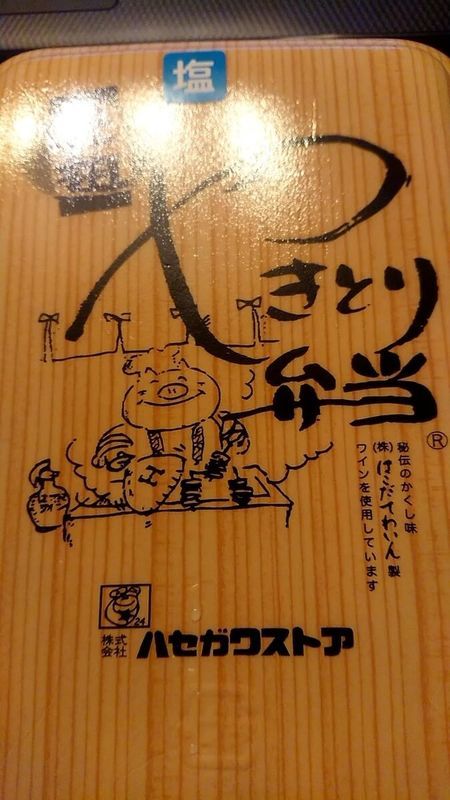 塩
元祖
やきとり
弁当
®
秘伝のかくし味
(株)はこだてわいん製
ワインを使用しています
24
株式会社
ハセガワストア